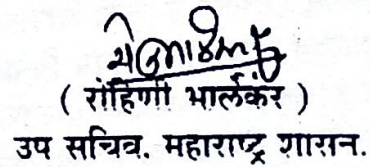 ( रोहिणी भालेकर )
उप सचिव. महाराष्ट्र शासन.